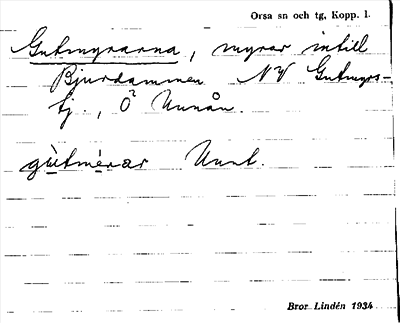 Orsa sn och tg, Kopp. l.
Gutmyrarna, myrar intill
Bjurdammen NV Gutmyrs-
tj., Ö Unnån.
gùtmèrar Unnt.
Bror Lindén 1934